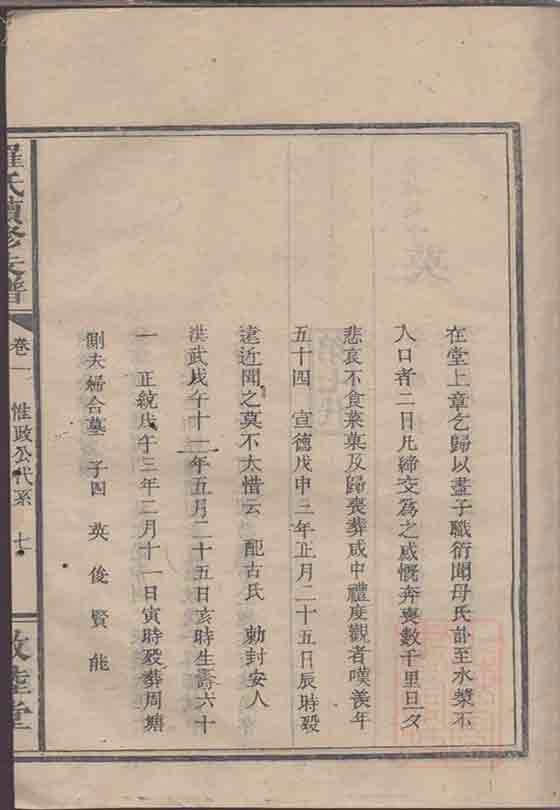 在堂上章乞歸以盡子職衍聞母氏訃至水漿不
入口者二日凡締交為之感慨奔喪數千里旦夕
悲哀不食菜菓及歸喪葬咸中禮度觀者嘆羨年
五十四 宣德戊申三年正月二十五日辰時歿
遠近聞之莫不太惜云 配古氏 勅封安人
洪武戊午十一年五月二十五日亥時生壽六十
一 正統戊午三年二月十一日寅時歿葬周塘
側夫婦合墓 子四 英 俊 賢 能
羅氏續修族譜 卷一 惟政公代系 七 敦睦堂